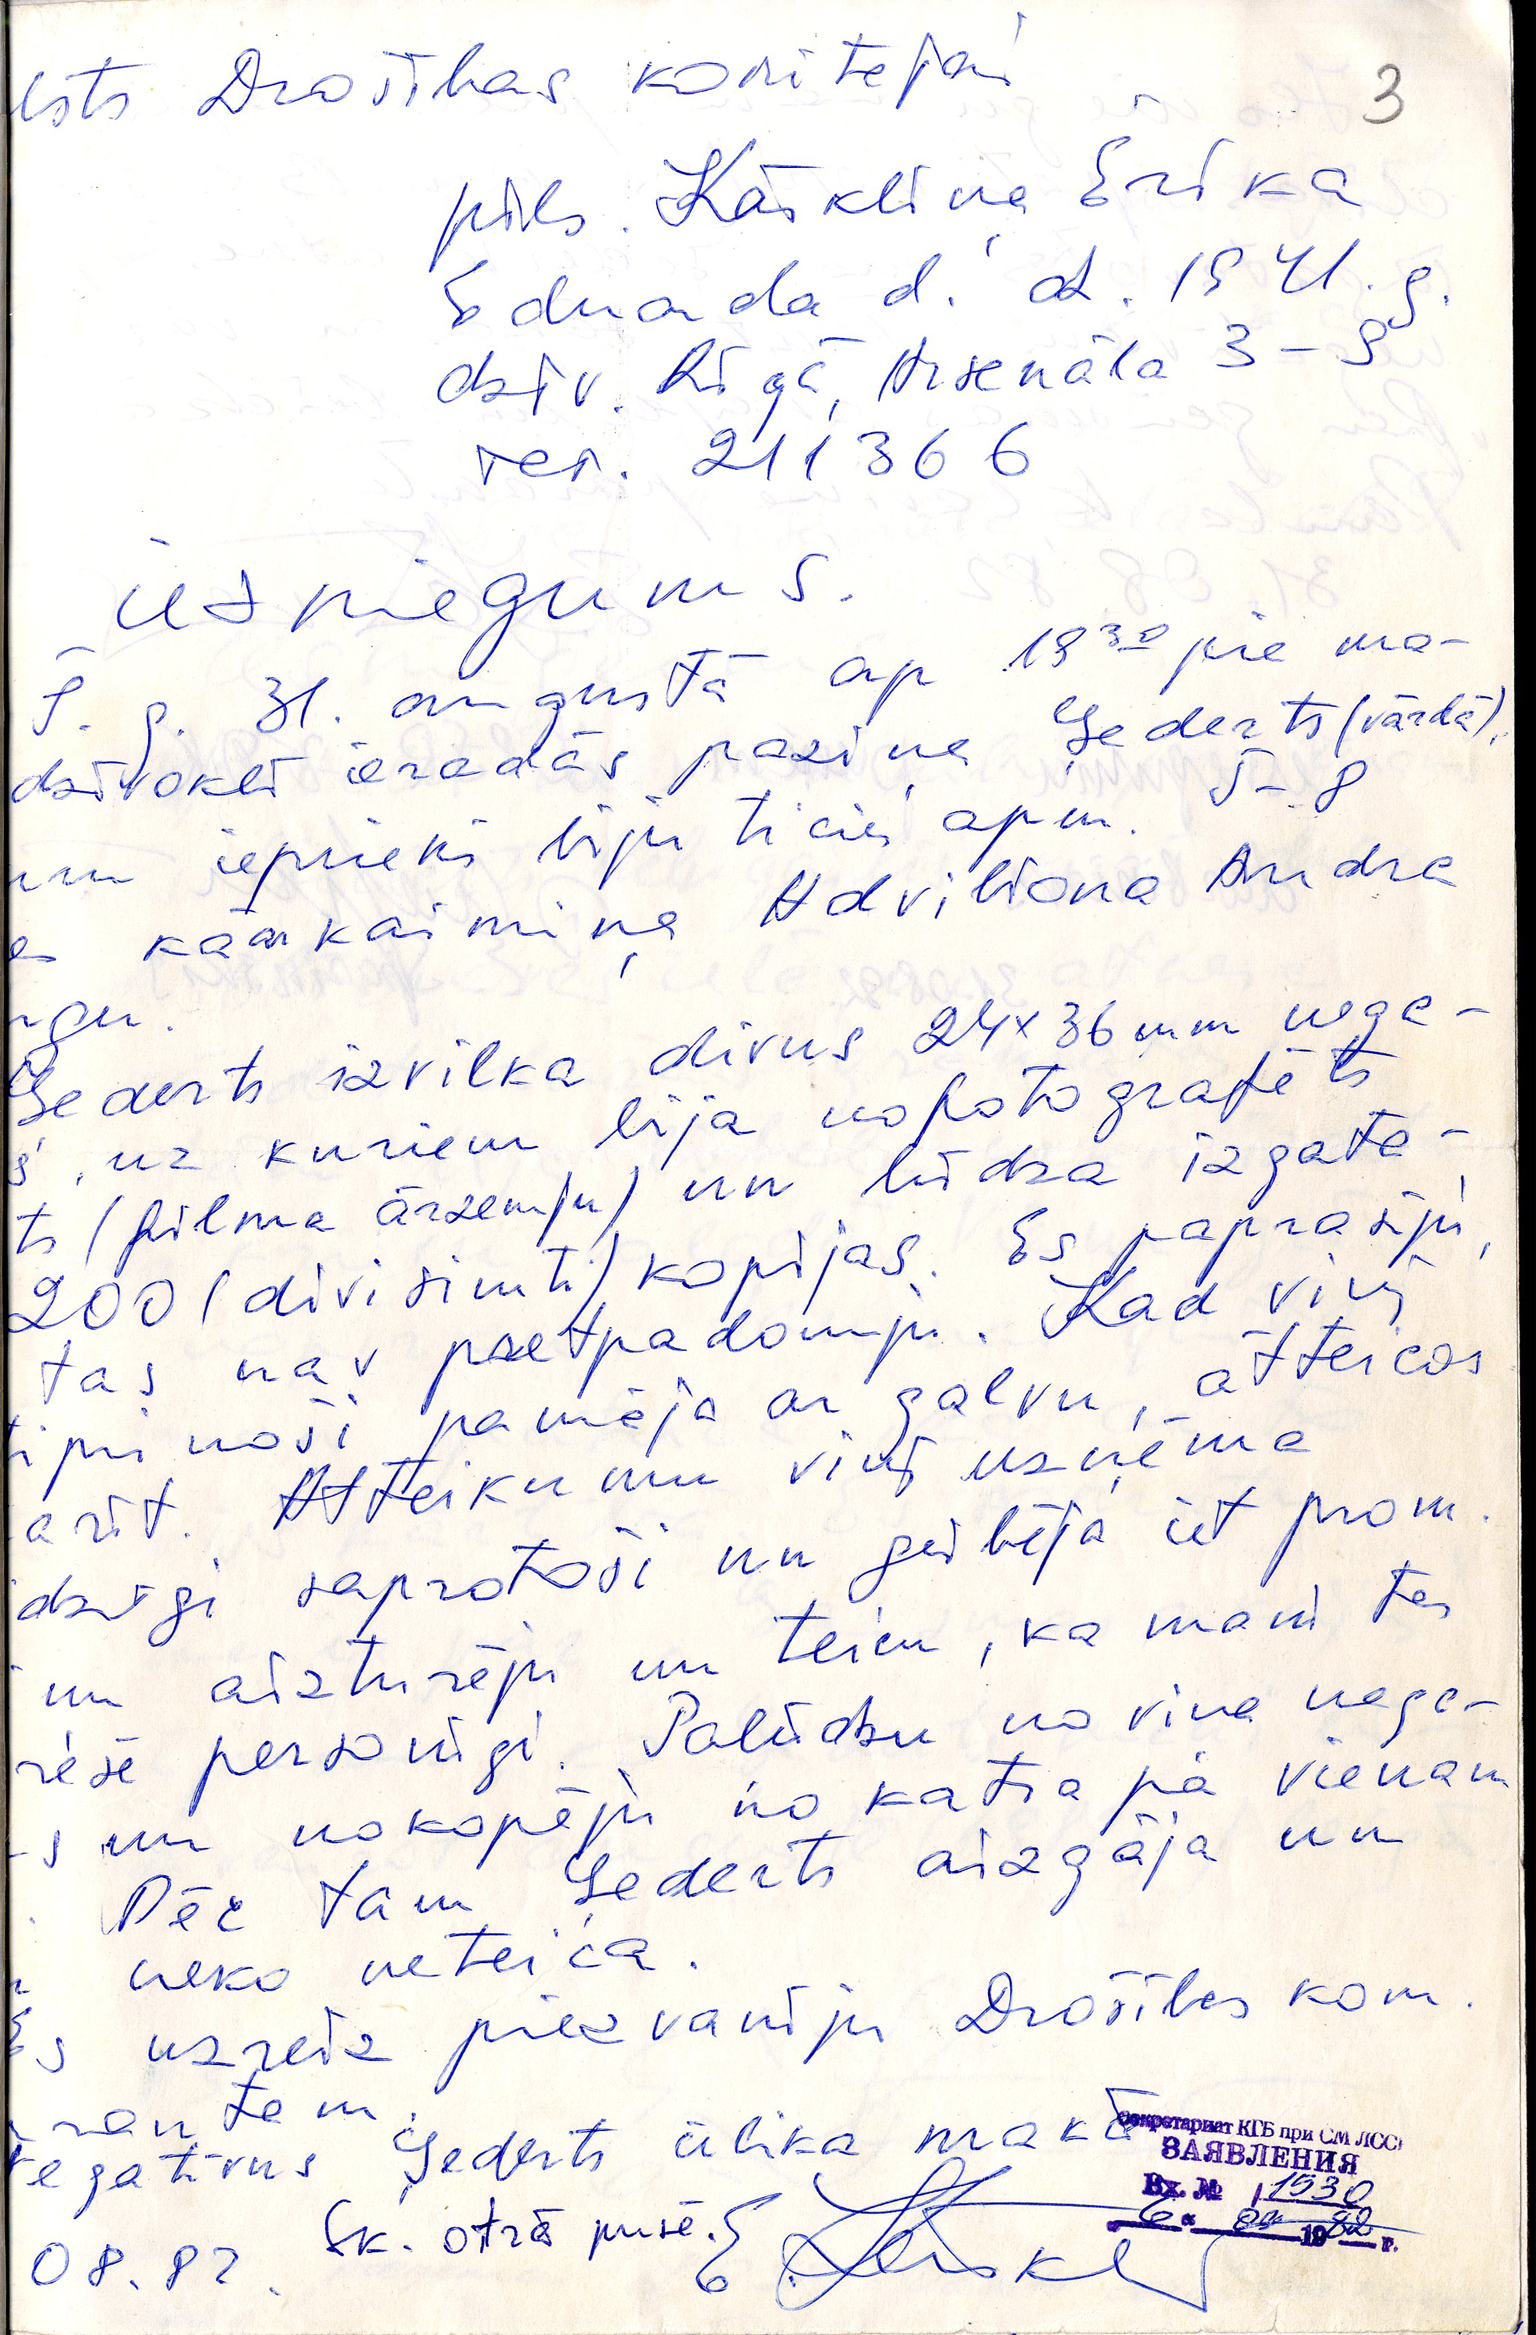 3
lsts Drošības komitejai
pils. Kārkliņa Ērika
Eduarda d. dz. 1941. g.
dzīv. Rīgā, Arsenāla 3-9
tel. 211366
iesniegums.
Š. g. 31. augustā ap 19 30 pie ma-
dzīvoklī ieradās paziņa Ģederts (vārdā),
iepriekš biju ticies apm. 5-8
kāar kaimiņa Adviliona Andra
Ģederts izvilka divus 24x36 mm nega-
, uz kuriem bija nofotografēts
ts (filma ārzemju) un lūdza izgata-
200 (divisimti) kopijas. Es paprasīju,
tas nav pretpadomju. Kad viņš
tipinoši pamāja ar galvu, atteicos
arīt. Atteikumu viņš uzņēma
dzīgi saprotoši un gribēja iet prom.
aizturēju un teicu, ka mani tas
rēsē personīgi. Palūdzu no viņa nega-
s un nokopēju no katra pa vienam
. Pēc tam Ģederts aizgāja un
neko neteica.
Es uzreiz piezvanīju Drošības kom.
rantam.
egatīvus Ģederts ielika makā
Sk. otrā pusē.
08.82.
Секретариат КГБ при СМ ЛССР
ЗАЯВЛЕНИЯ
Вх. № 1530
6 « 09 1982 г.